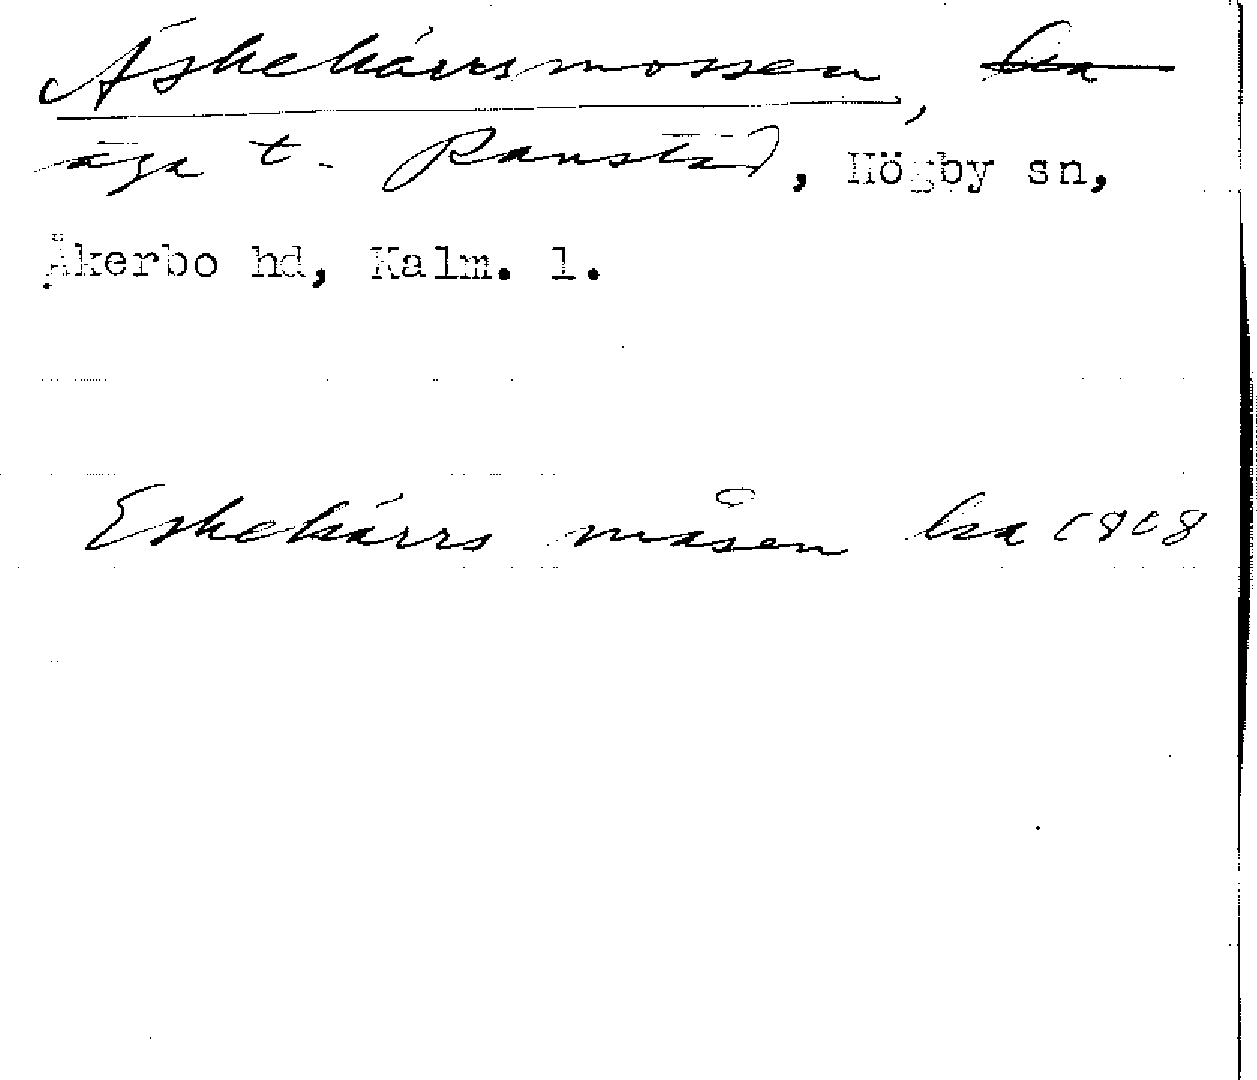 Äskekärrsmossen,
äga t. Ramstad, Högby sn,
Åkerbo hd, Kalm. l.
Eskekärrs måsen lsa 1808